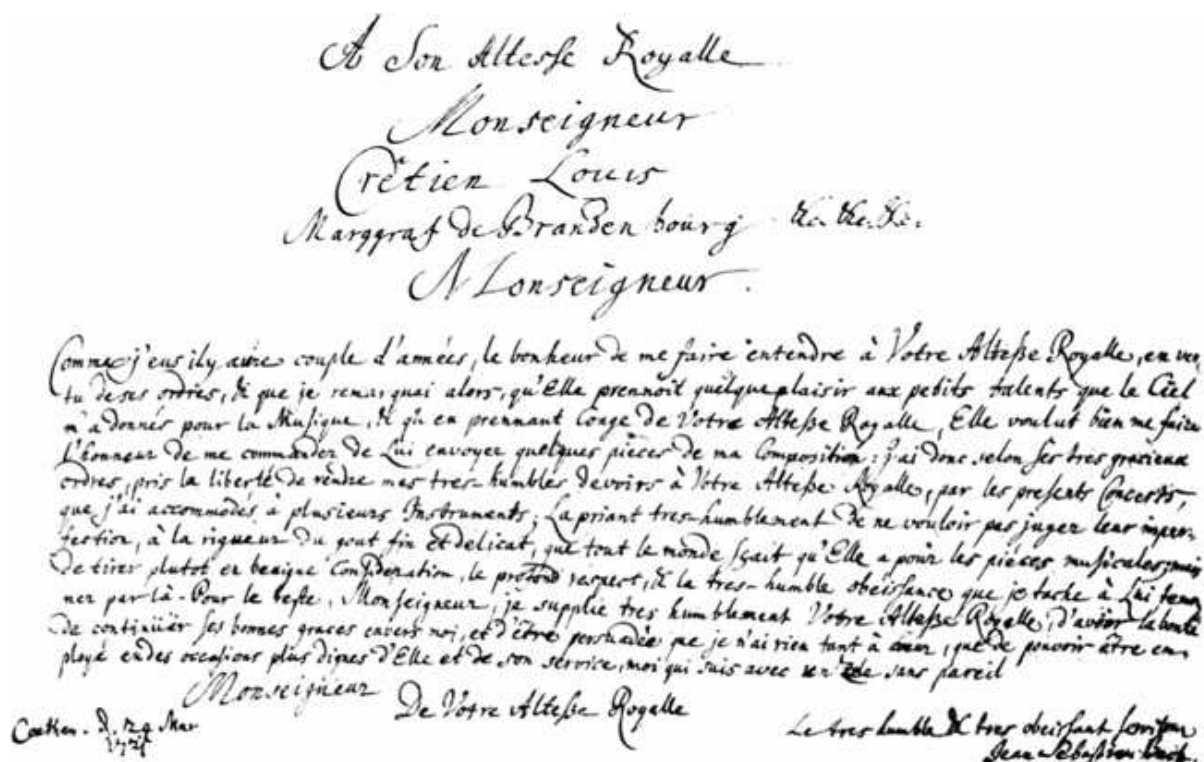 A Son Altesse Royalle
Monseigneur
Crêtien Louis
Marggraf de Brandenbourg &c. &c. &c.
Monseigneur.
Comme j'eus il y a une couple d'années, le bonheur de me faire entendre à Votre Alteße Royalle, en ver-
tu de ses ordres, & que je remarquai alors, qu'Elle prennoit quelque plaisir aux petits talents que le Ciel
m'a donnés pour la Musique, & qu'en prennant Conge de Votre Alteße Royalle, Elle voulut bien me faire
l'honneur de me commander de Lui envoyer quelques pieces de ma Composition: j'ai donc selon ses tres gracieux
ordres, pris la liberté de rendre mes tres-humbles devoirs à Votre Alteße Royalle, par les presents Concerts,
que j'ai accommodés à plusieurs Instruments; La priant tres-humblement de ne vouloir pas juger leur imper-
fection, à la rigueur du gout fin et delicat, que tout le monde sçait qu'Elle a pour les piéces musicales; mais
de tirer plutot en benigne Consideration, le profond respect, & la tres-humble obeissance que je tache à Lui temoi-
ner par là. Pour le reste, Monseigneur, je supplie tres humblement Votre Alteße Royalle, d'avoir la bonté
de continüer ses bonnes graces envers moi, et d'être persuadée que je n'ai rien tant à cœur, que de pouvoir être em-
ployé en des occasions plus dignes d'Elle et de son service, moi qui suis avec un zele sans pareil
Monseigneur
De Votre Alteße Royalle
Coethen. d. 24 Mar
1721
Le tres humble & tres obeissant serviteur
Jean Sebastien Bach.